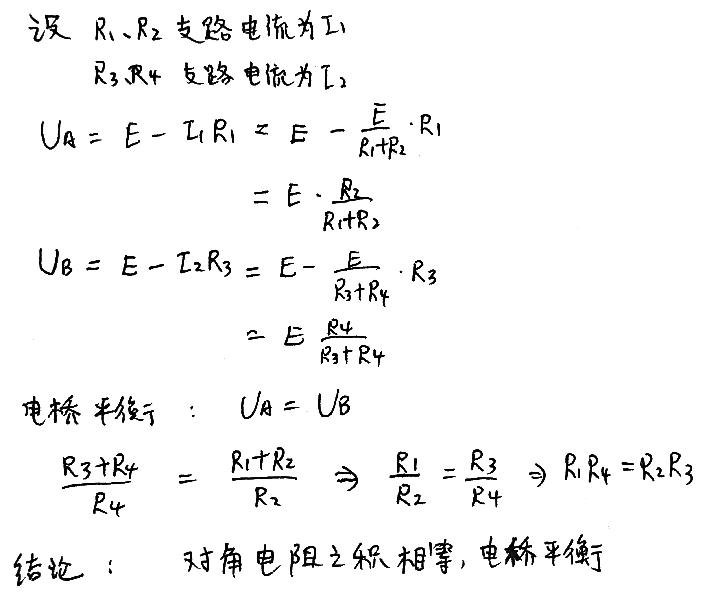 设 R₁、R₂ 支路电流为 I₁
R₃、R₄ 支路电流为 I₂
U_A = E - I₁R₁ = E - E/(R₁+R₂) · R₁
= E · R₂/(R₁+R₂)
U_B = E - I₂R₃ = E - E/(R₃+R₄) · R₃
= E R₄/(R₃+R₄)
电桥平衡 : U_A = U_B
(R₃+R₄)/R₄ = (R₁+R₂)/R₂ ⇒ R₁/R₂ = R₃/R₄ ⇒ R₁R₄ = R₂R₃
结论 : 对角电阻之积相等, 电桥平衡